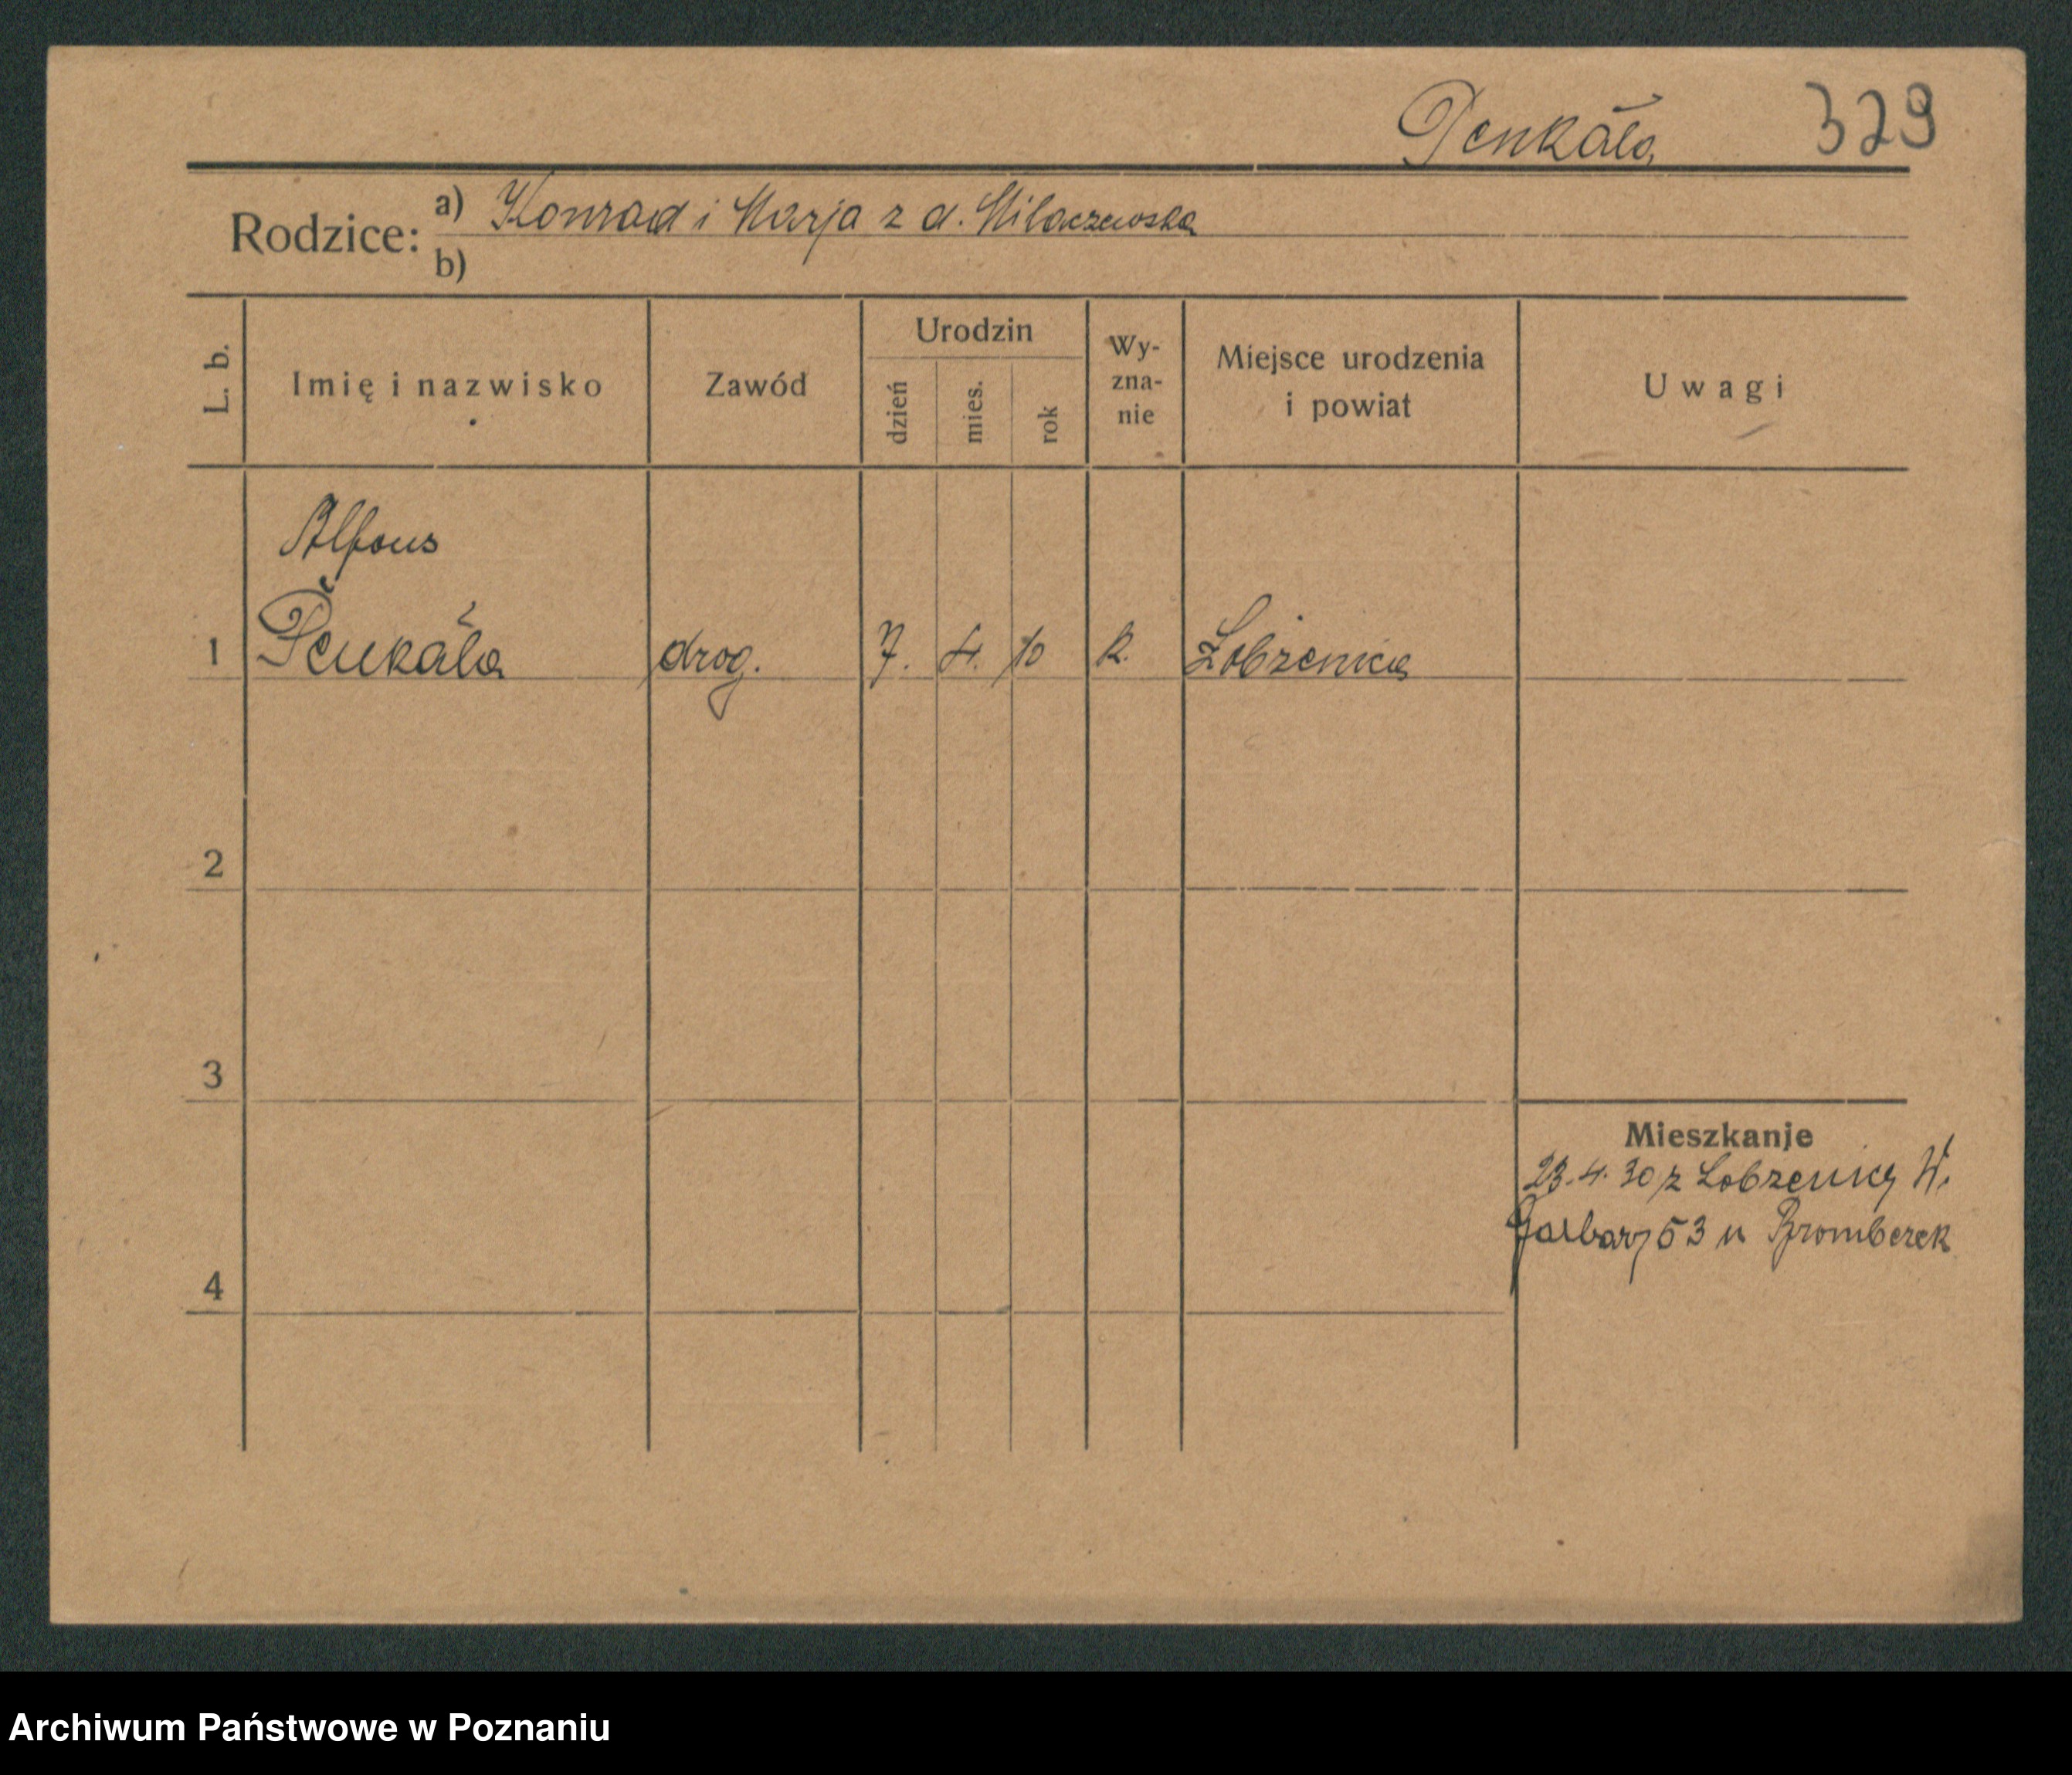 Penkała 329
Rodzice: a) Konrad i Marja z d. Milaczewska
b)
L. b. Imię i nazwisko Zawód Urodzin dzień mies. rok Wy-zna-nie Miejsce urodzenia i powiat Uwagi
Alfons
1 Penkała drog. 7. 4. 10 k. Łobżenica
2
3
Mieszkanie
23.4.30 z Łobżenicy W.
Garbary 53 u Bromberek
4
Archiwum Państwowe w Poznaniu